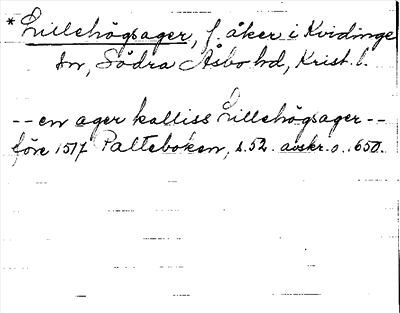 *Lillehögsager, f. åker i Kvidinge
sn, Södra Åsbo hd, Krist. l.
-- en ager kalliss Lillehögsager --
före 1517 Palteboken, s. 52. avskr. o. 1650.